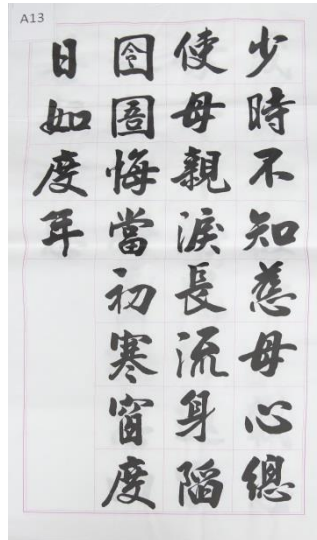 A13
少時不知慈母心總
使母親淚長流身陷
囹圄悔當初寒窗度
日如度年